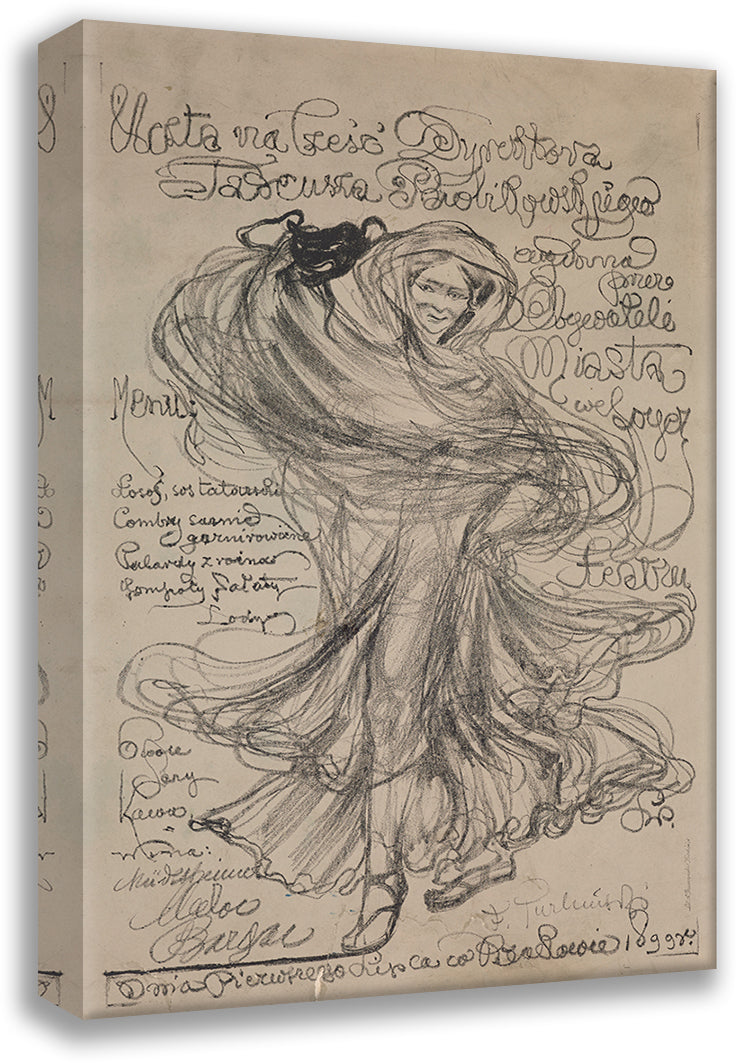 Uczta na Cześć Dyrektora
Tadeusza Pawlikowskiego
wydana
przez
Obywateli
Miasta
we foyer
teatru
Menu:
Łosoś, sos tatarski
Combry sarnie
garnirowane
Pulardy z rożna
Kompoty, Sałaty
Lody
Owoce
Sery
Kawa
wina:
W.
Dnia Pierwszego Lipca w Krakowie 1899 r.